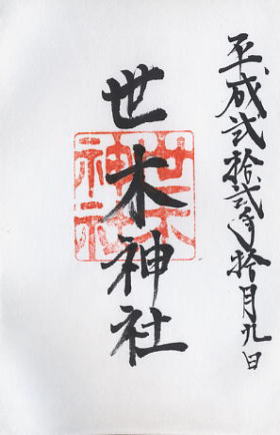 平成弐拾弐年拾月九日
世木神社
世木神社